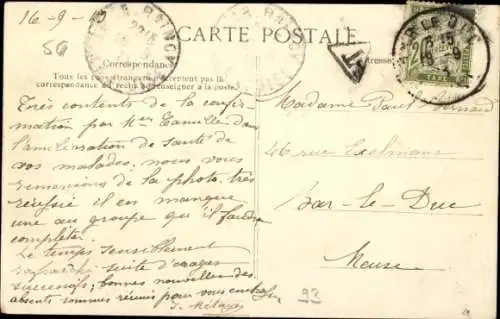 16-9-13
CARTE POSTALE
Correspondance
Adresse
Tous les pays étrangers n'acceptent pas la
correspondance au recto. Se renseigner à la poste.
T
20
TAXE
BAR LE DUC
Très contents de la confir
mation par Camille dans
l'amélioration de santé de
vos malades; nous vous
remercions de la photo très
réussie il en manque
une au groupe qu'il faudra
compléter.
Le temps sensiblement
rafraîchi suite d'orages
successifs; bonnes nouvelles des
absents sommes réunis pour vous
Madame Paul
46 rue Exelmans
Bar-le-Duc
Meuse
93